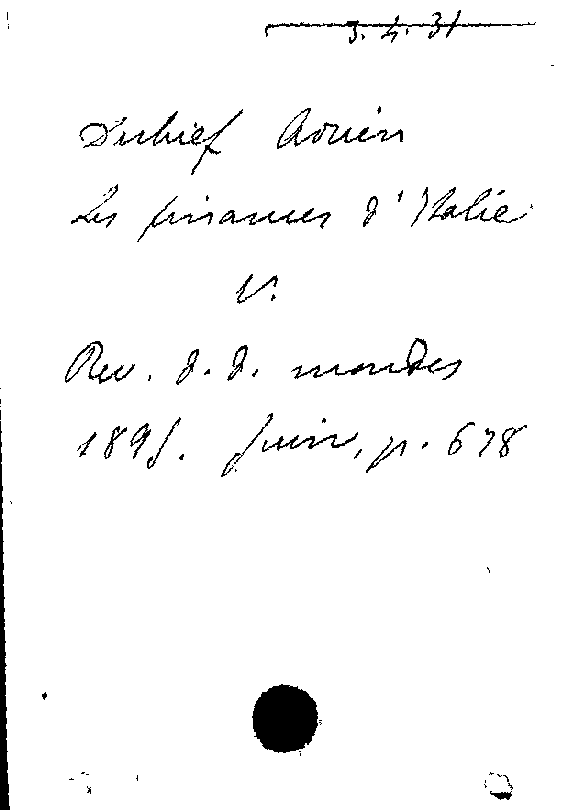 3. 4. 31
Dubief Adrien
Les finances d'Italie
V.
Rev. d. d. mondes
1895. Juin, p. 678